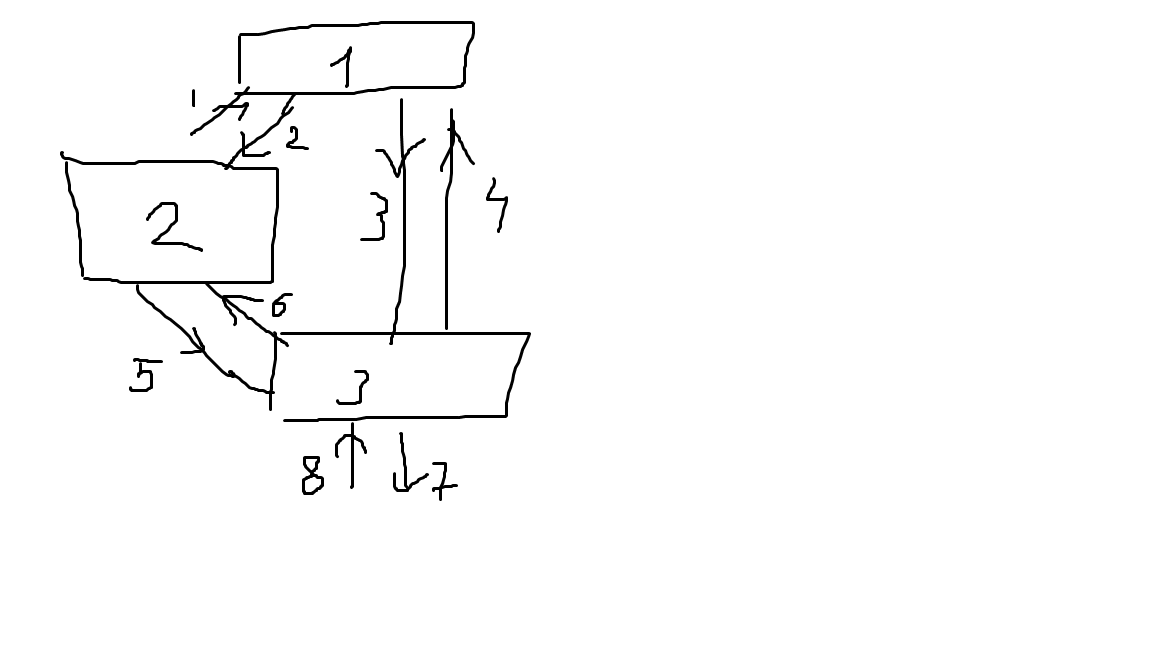 1
1
2
2
3
4
6
5
3
8
7